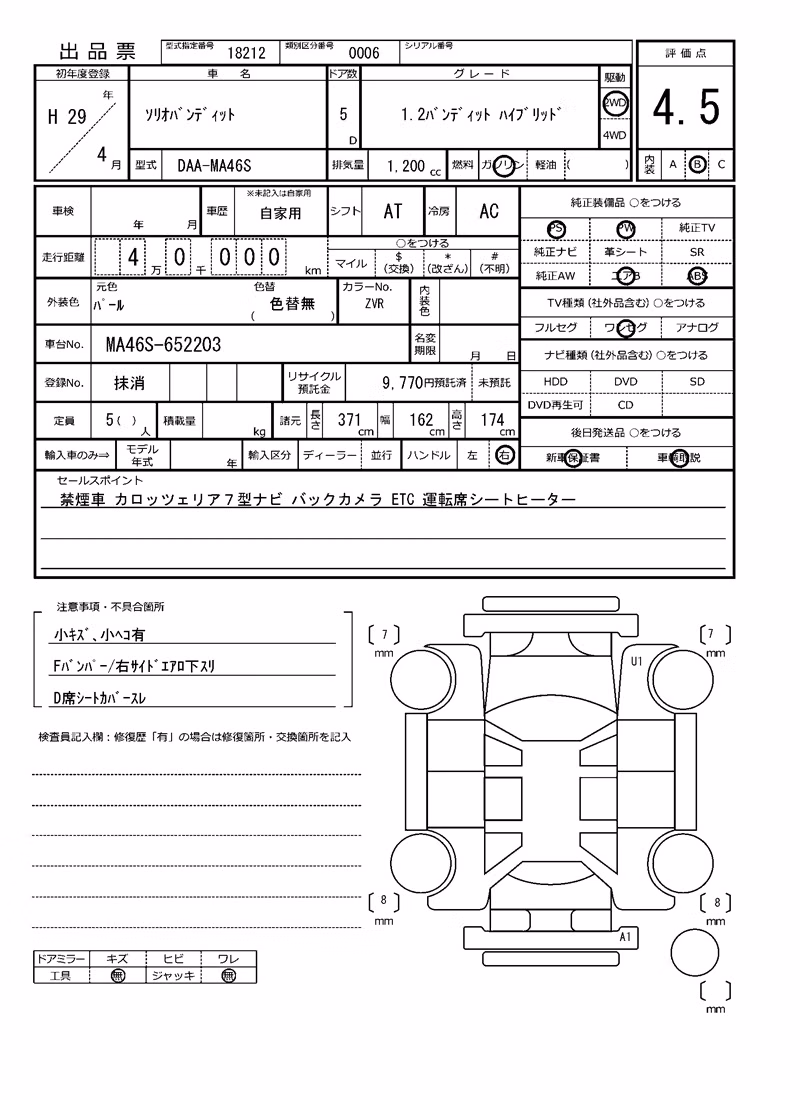 出品票 型式指定番号 18212 類別区分番号 0006 シリアル番号
初年度登録 車名 ドア数 グレード 駆動 評価点
H 29 年 4 月 ｿﾘｵﾊﾞﾝﾃﾞｨｯﾄ 5 D 1.2ﾊﾞﾝﾃﾞｨｯﾄ ﾊｲﾌﾞﾘｯﾄﾞ 2WD 4WD 4.5
型式 DAA-MA46S 排気量 1,200 cc 燃料 ガソリン 軽油 ( ) 内装 A B C
車検 年 月 車歴 ※未記入は自家用 自家用 シフト AT 冷房 AC 純正装備品 ○をつける
PS PW 純正TV
走行距離 4 万 0 千 0 0 0 km ○をつける
マイル $(交換) *(改ざん) #(不明)
純正ナビ 革シート SR
純正AW エアB ABS
外装色 元色 ﾊﾟｰﾙ 色替 ( 色替無 ) カラーNo. ZVR 内装色
TV種類(社外品含む) ○をつける
フルセグ ワンセグ アナログ
車台No. MA46S-652203 名変期限 月 日
ナビ種類(社外品含む) ○をつける
登録No. 抹消 リサイクル預託金 9,770円預託済 未預託
HDD DVD SD
DVD再生可 CD
定員 5( ) 人 積載量 kg 諸元 長さ 371 cm 幅 162 cm 高さ 174 cm
後日発送品 ○をつける
輸入車のみ⇒ モデル年式 年 輸入区分 ディーラー 並行 ハンドル 左 右
新車保証書 車輌取説
セールスポイント
禁煙車 カロッツェリア７型ナビ バックカメラ ETC 運転席シートヒーター
注意事項・不具合箇所
小ｷｽﾞ､小ﾍｺ有
Fﾊﾞﾝﾊﾟｰ/右ｻｲﾄﾞｴｱﾛ下ｽﾘ
D席ｼｰﾄｶﾊﾞｰｽﾚ
検査員記入欄：修復歴「有」の場合は修復箇所・交換箇所を記入
〔 7 〕 mm
〔 7 〕 mm
U1
〔 8 〕 mm
〔 8 〕 mm
A1
〔 〕 mm
ドアミラー キズ ヒビ ワレ
工具 無 ジャッキ 無